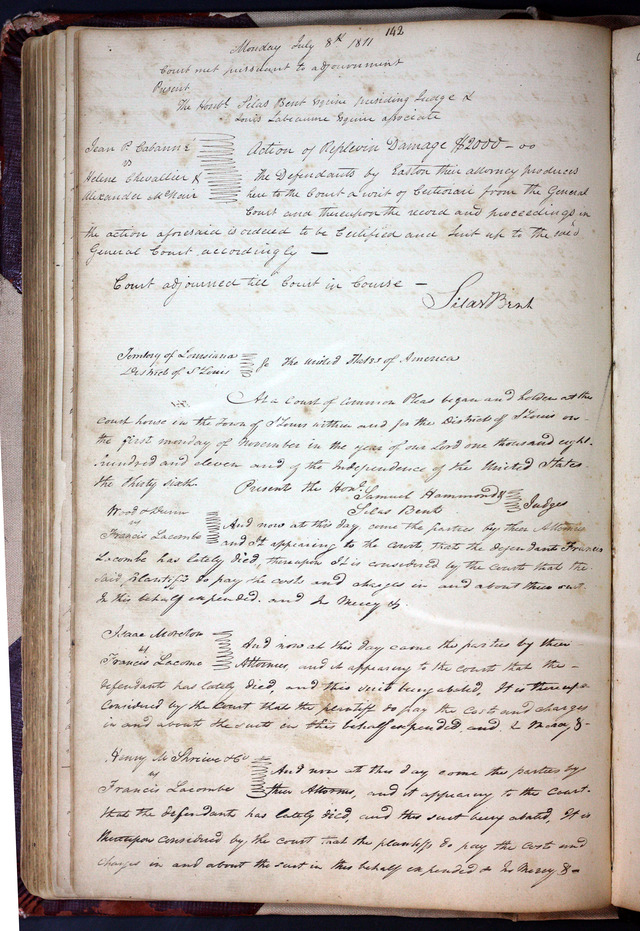 142
Monday July 8th 1811
Court met pursuant to adjournment
Present
The Honbl. Silas Bent Esquire presiding Judge &
Louis Labeaume Esquire associate
Jean P. Cabanné
vs
Helene Chevallier &
Alexander McNair
Action of Replevin Damage $2000 – 00
The Defendants by Easton their attorney produces
here to the Court a writ of Certiorari from the General
Court and thereupon the record and proceedings in
the action aforesaid is ordered to be Certified and Sent up to the said
General Court accordingly —
Court adjourned till Court in Course —
Silas Bent
Territory of Louisiana
District of St Louis
The United States of America
At a Court of Common Pleas began and holden at the
court house in the Town of St Louis within and for the District of St Louis on
the first monday of November in the year of our Lord one thousand eight
hundred and eleven and of the Independence of the United States
the thirty sixth
Presents the Honl.
Samuel Hammond &
Silas Bent
Judges
Wood &
vs
Francis Lacombe
And now at this day come the parties by their Attornies
and It appearing to the Courts that the defendant Francis
Lacombe has lately died thereupon It is considered by the Courts that the
said plaintiffs do pay the costs and charges in and about their suit
In this behalf expended. and In Mercy &.
Isaac Moreton
vs
Francis Lacome
And now at this day came the parties by their
Attornies, and it appearing to the court that the –
defendant has lately died, and this suit being abated, It is thereupon
Considered by the Court that the plaintiff do pay the Cost and charges
in and about the suit in this behalf expended and In Mercy &–
Henry & Co
vs
Francis Lacombe
And now at this day come the parties by
their Attornies, and it appearing to the Court.
that the defendant has lately died, and this suit being abated, It is
thereupon considered by the court that the plaintiffs do pay the Costs and
charges in and about the suit in this behalf expended & In Mercy &–